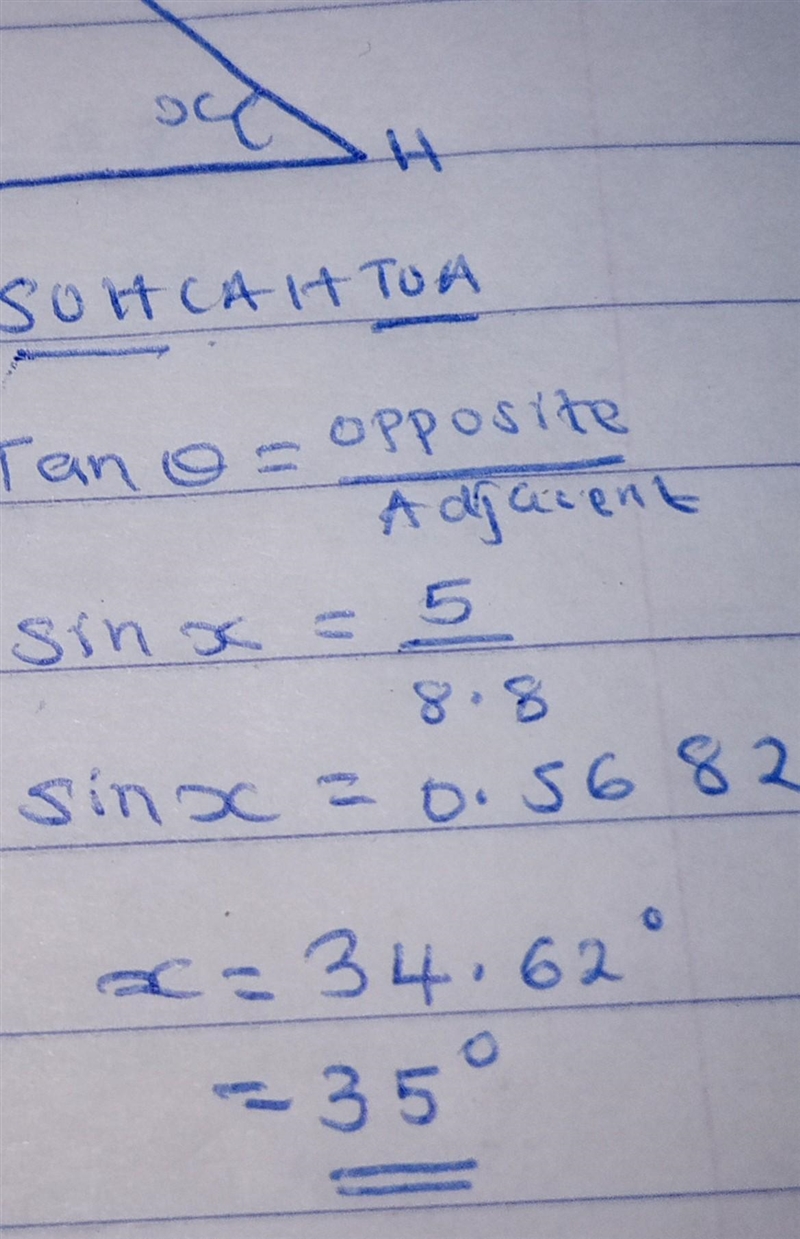 x
H
SOHCAHTOA
Tan θ = opposite
Adjacent
sin x = 5
8.8
sin x = 0.5682
x = 34.62°
= 35°